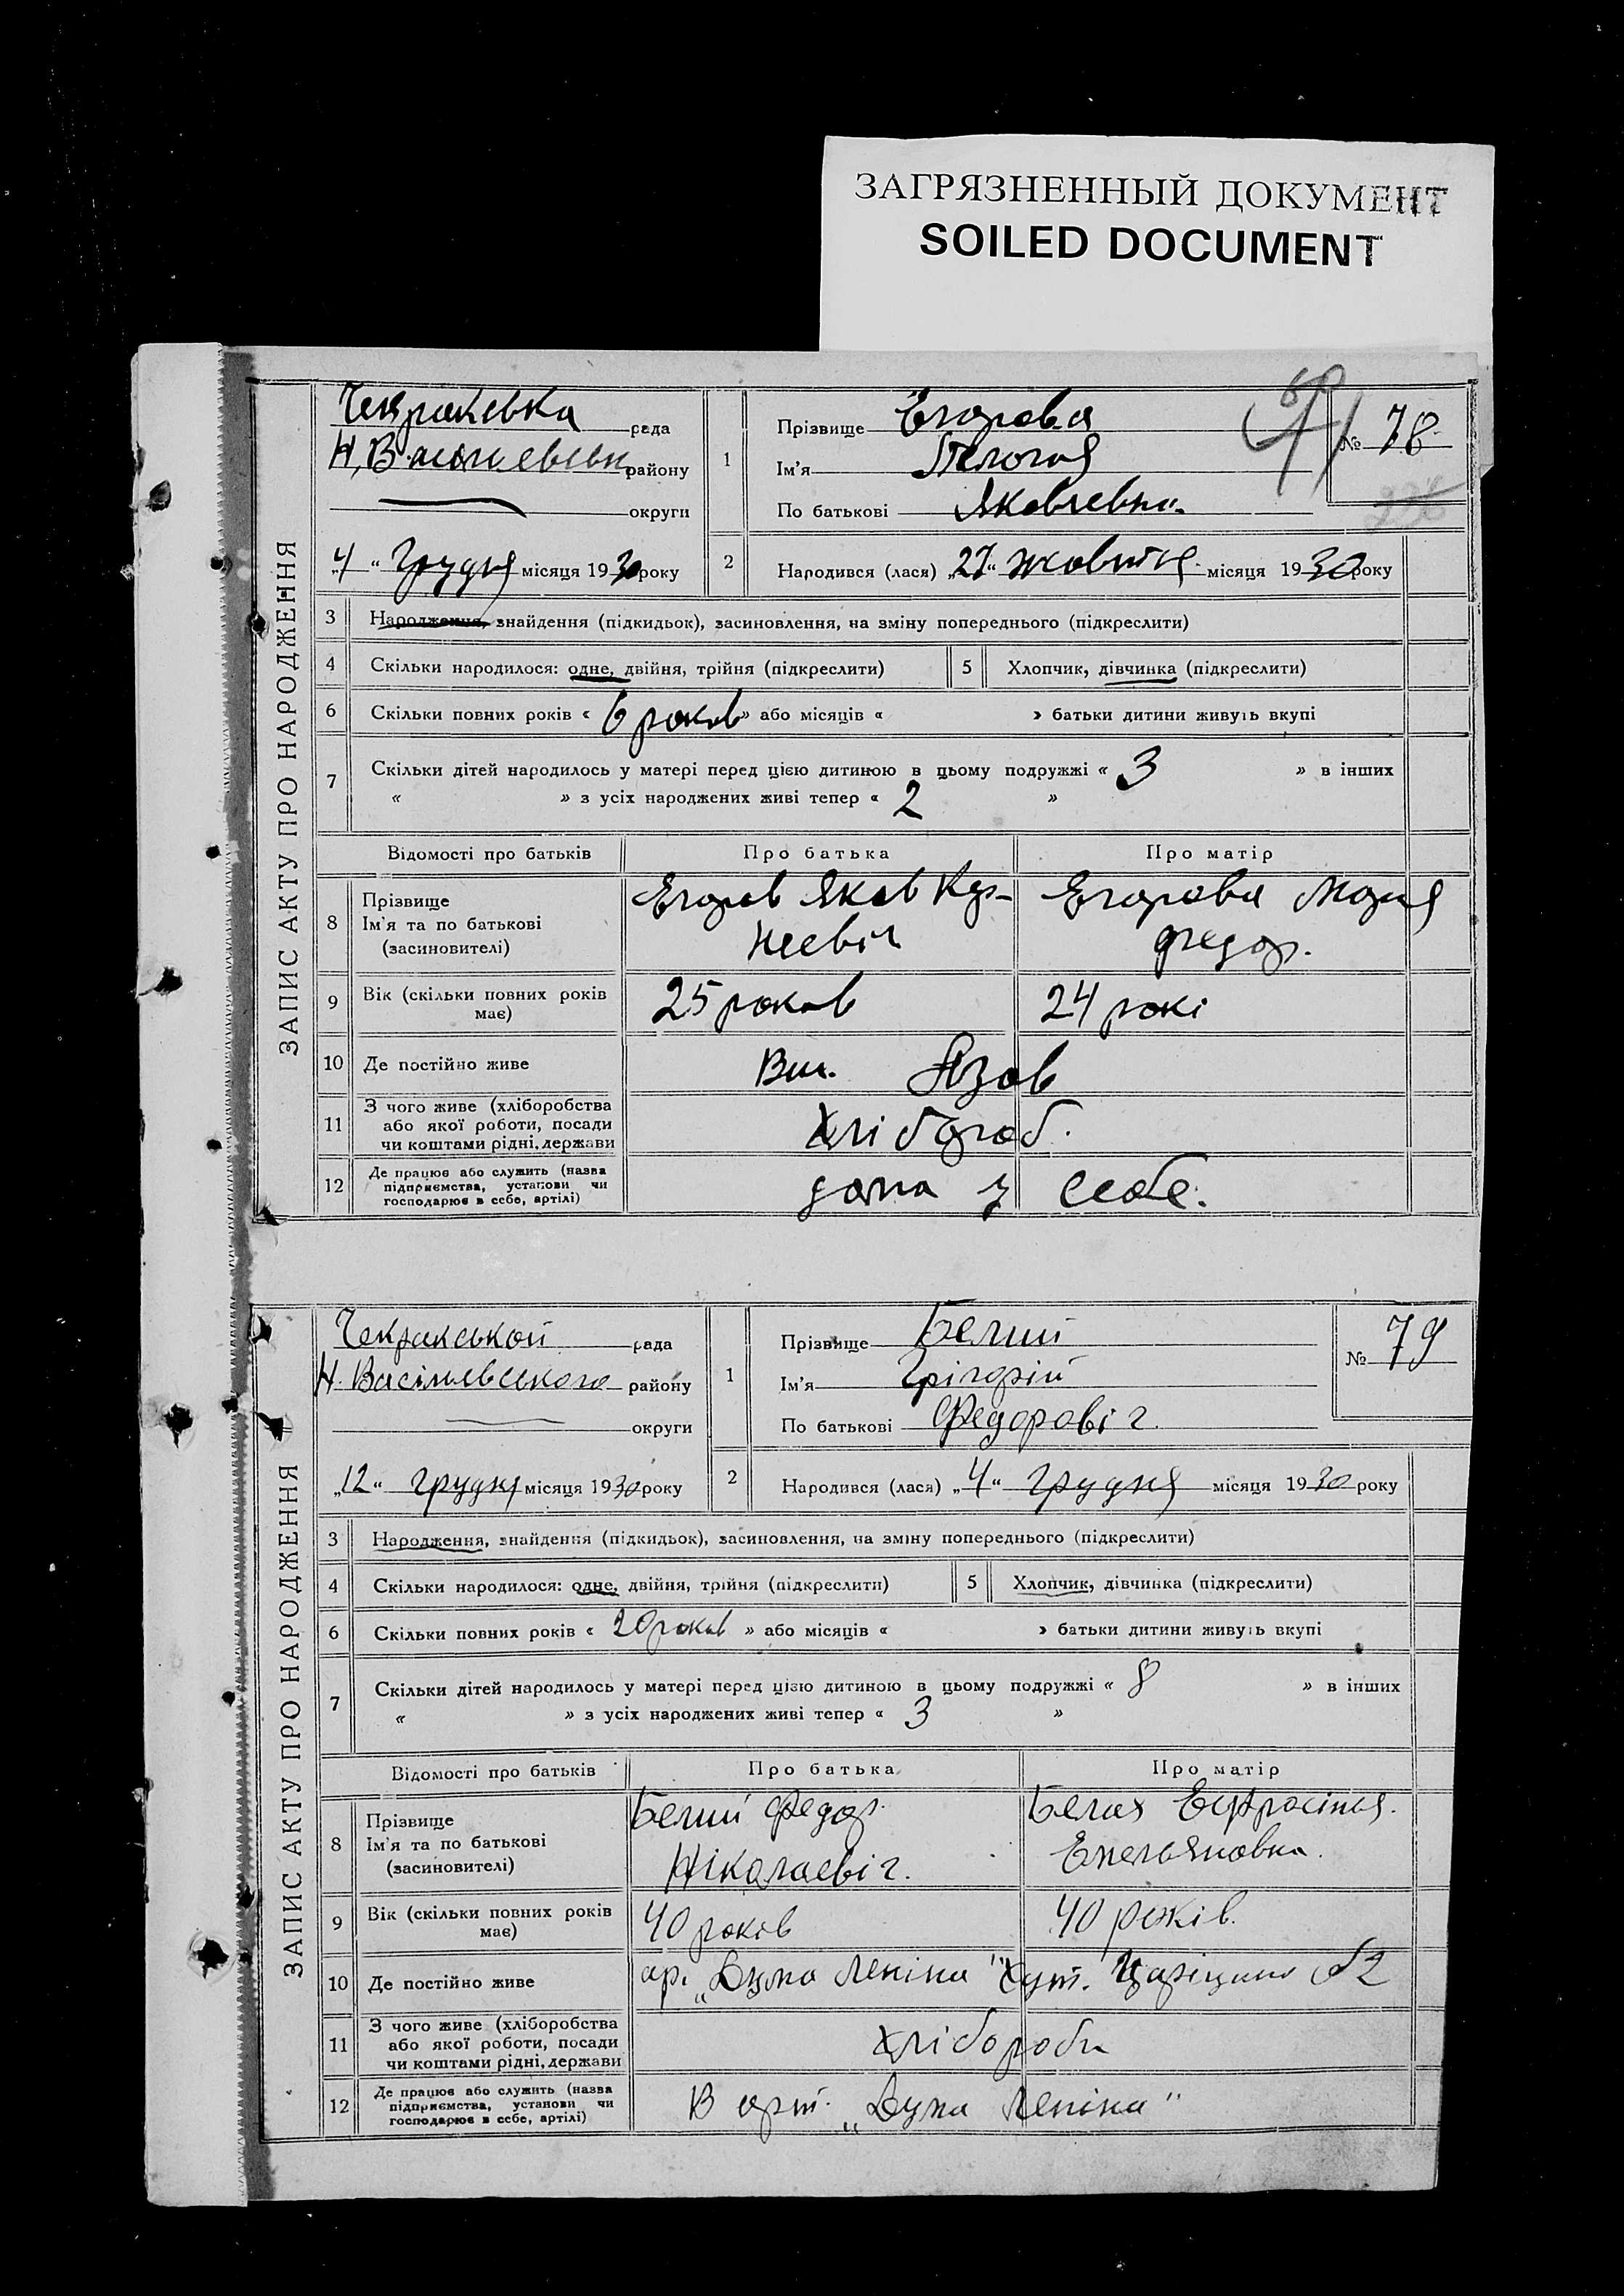 ЗАГРЯЗНЕННЫЙ ДОКУМЕНТ
SOILED DOCUMENT
ЗАПИС АКТУ ПРО НАРОДЖЕННЯ
рада
району
округи
„4“ Грудня місяця 1930 року
1
Прізвище Егорова
Ім'я
По батькові Яковлевна
№ 78
2
Народився (лася) „27“ жовтня місяця 1930 року
3 Народження, знайдення (підкидьок), засиновлення, на зміну попереднього (підкреслити)
4 Скільки народилося: одне, двійня, трійня (підкреслити)
5 Хлопчик, дівчинка (підкреслити)
6 Скільки повних років « 6 роков » або місяців « » батьки дитини живуть вкупі
7 Скільки дітей народилось у матері перед цією дитиною в цьому подружжі « 3 » в інших
« » з усіх народжених живі тепер « 2 »
Відомості про батьків Про батька Про матір
8 Прізвище
Ім'я та по батькові
(засновителі)
Егоров Яков Кор-
неевіч
Егорова Марія
Федор.
9 Вік (скільки повних років
має)
25 роков 24 рокі
10 Де постійно живе Азов
11 З чого живе (хліборобства
або якої роботи, посади
чи коштами рідні, держави
Хлібороб.
12 Де працює або служить (назва
підприємства, установи чи
господарює в себе, артілі)
дома у себе.
ЗАПИС АКТУ ПРО НАРОДЖЕННЯ
Чекракськой рада
Н. Васільевського району
округи
„12“ грудня місяця 1930 року
1
Прізвище Белий
Ім'я Грігорій
По батькові Федоровіч.
№ 79
2
Народився (лася) „4“ Грудня місяця 1930 року
3 Народження, знайдення (підкидьок), засиновлення, на зміну попереднього (підкреслити)
4 Скільки народилося: одне, двійня, трійня (підкреслити)
5 Хлопчик, дівчинка (підкреслити)
6 Скільки повних років « 20 роков » або місяців « » батьки дитини живуть вкупі
7 Скільки дітей народилось у матері перед цією дитиною в цьому подружжі « 8 » в інших
« » з усіх народжених живі тепер « 3 »
Відомості про батьків Про батька Про матір
8 Прізвище
Ім'я та по батькові
(засиновителі)
Белий Федор.
Ніколаевіч.
Белая Ефросінія.
Емельяновна.
9 Вік (скільки повних років
має)
40 років 40 років.
10 Де постійно живе ар. „Дума Леніна" Хут. Царіцино №2
11 З чого живе (хліборобства
або якої роботи, посади
чи коштами рідні, держави
Хлібороби
12 Де працює або служить (назва
підприємства, установи чи
господарює в себе, артілі)
В арт. „Дума Леніна"